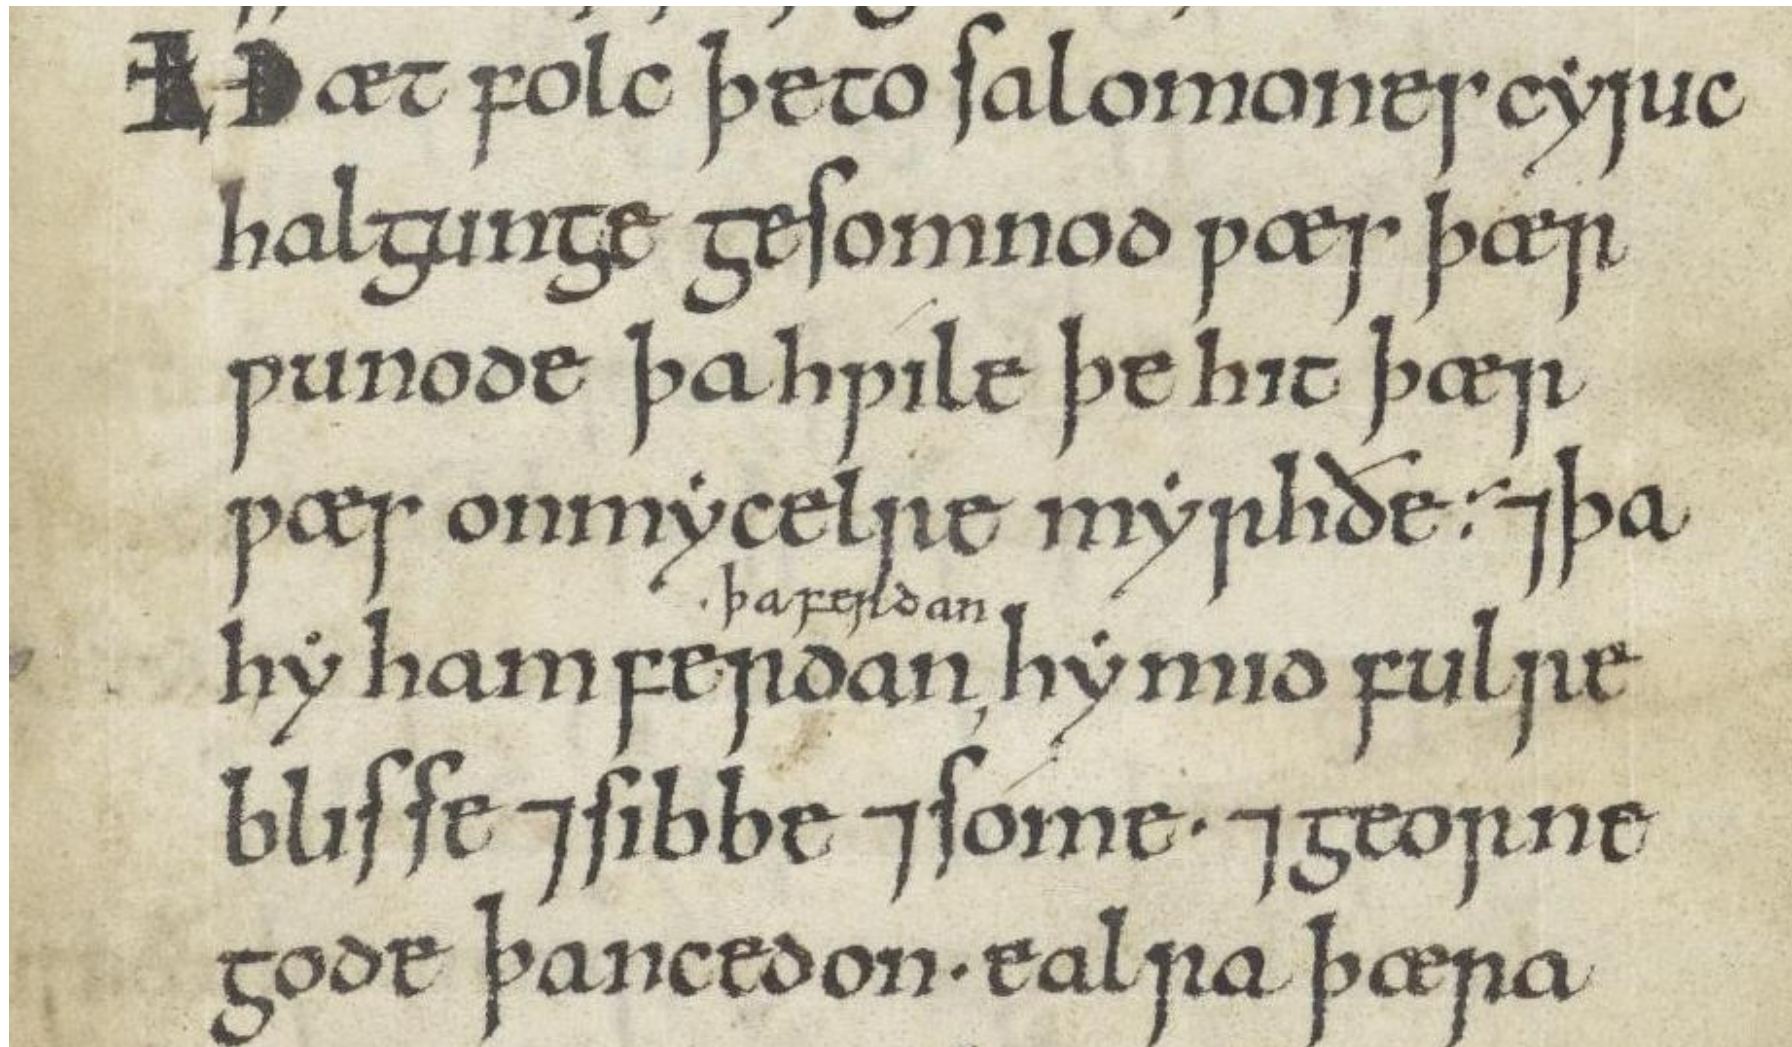 Ðæt folc þe to salomones cyric
halgunge gesomnod ƿæs þær
ƿunode þa hƿile þe hit þær
ƿæs on mycelre myrhðe ⁊ þa
þa ferdan
hy ham ferdan, hy mid fulre
blisse ⁊ sibbe ⁊ some · ⁊ georne
gode þancedon · ealra þæra